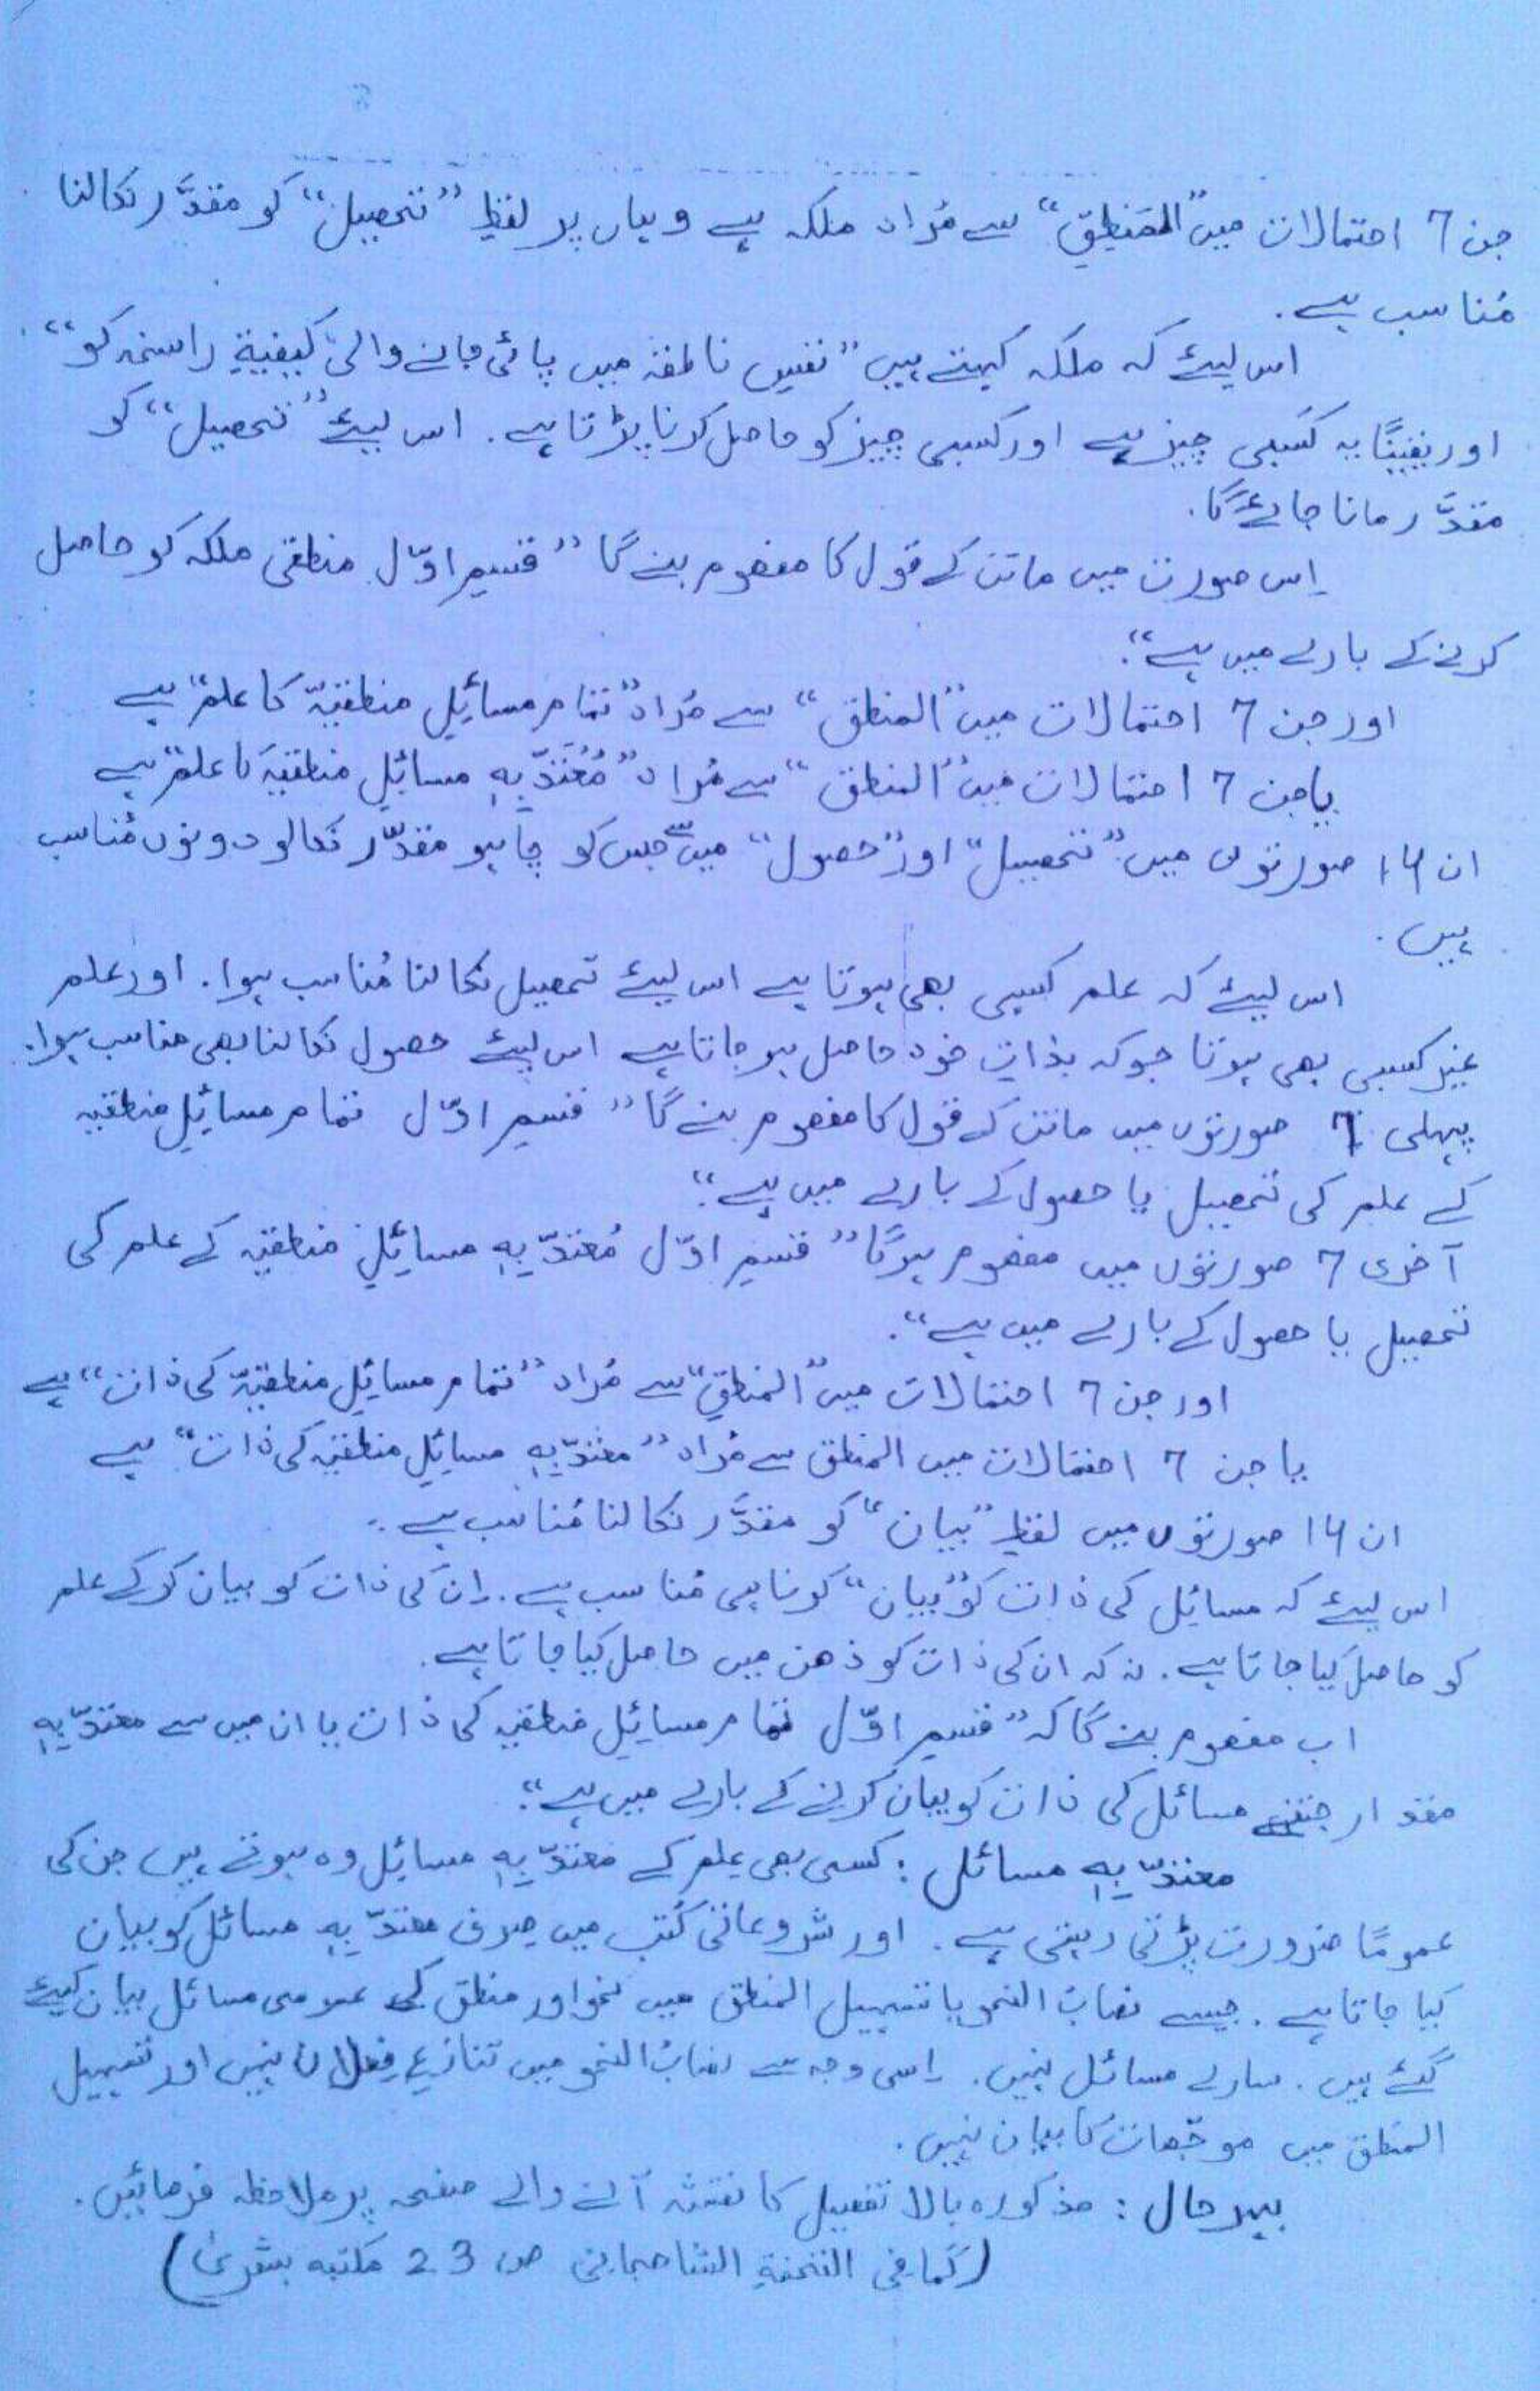 جن 7 احتمالات میں "المَنطِقِ" سے مُراد ملکہ ہے وہاں پر لفظِ "تحصیل" کو مقدَّر نکالنا
مُناسب ہے.
اس لیئے کہ ملکہ کہتے ہیں "نفسِ ناطقہ میں پائی جانے والی کیفیةِ راسخہ کو"
اور یقینًا یہ کَسبی چیز ہے اور کسبی چیز کو حاصل کرنا پڑتا ہے. اس لیئے "تحصیل" کو
مقدَّر مانا جائے گا.
اِس صورت میں ماتن کے قول کا مفھوم بنے گا "قسمِ اوّل منطقی ملکہ کو حاصل
کرنے کے بارے میں ہے".
اور جن 7 احتمالات میں "المنطق" سے مُراد "تمام مسائلِ منطقیّہ کا علم" ہے
یا جن 7 احتمالات میں "المنطق" سے مُراد "مُعْتَدّ بِہٖ مسائلِ منطقیہ کا علم" ہے
ان 14 صورتوں میں "تحصیل" اور "حصول" میں سے جس کو چاہو مقدّر نکالو دونوں مُناسب
ہیں.
اس لیئے کہ علم کسبی بھی ہوتا ہے اس لیئے تحصیل نکالنا مُناسب ہوا. اور علم
غیر کسبی بھی ہوتا جوکہ بذاتِ خود حاصل ہو جاتا ہے اس لیئے حصول نکالنا بھی مناسب ہوا.
پہلی 7 صورتوں میں ماتن کے قول کا مفھوم بنے گا "قسمِ اوّل تمام مسائلِ منطقیہ
کے علم کی تحصیل یا حصول کے بارے میں ہے"
آخری 7 صورتوں میں مفھوم ہوگا "قسمِ اوّل مُعْتَدّ بِہٖ مسائلِ منطقیہ کے علم کی
تحصیل یا حصول کے بارے میں ہے".
اور جن 7 احتمالات میں "المنطقِ" سے مُراد "تمام مسائلِ منطقیّہ کی ذات" ہے
یا جن 7 احتمالات میں المنطق سے مُراد "معتدّ بِہٖ مسائلِ منطقیہ کی ذات" ہے
ان 14 صورتوں میں لفظِ "بیان" کو مقدَّر نکالنا مُناسب ہے.
اس لیئے کہ مسائل کی ذات کو "بیان" کرنا ہی مُناسب ہے. اِن کی ذات کو بیان کرکے علم
کو حاصل کیا جاتا ہے. نہ کہ ان کی ذات کو ذھن میں حاصل کیا جاتا ہے.
اب مفھوم بنے گا کہ "قسمِ اوّل تمام مسائلِ منطقیہ کی ذات یا ان میں سے معتدّ بِہٖ
مقدار جتنے مسائل کی ذات کو بیان کرنے کے بارے میں ہے".
معتدّ بِہٖ مسائل : کسی بھی علم کے معتدّ بِہٖ مسائل وہ ہوتے ہیں جن کی
عمومًا ضرورت پڑتی رہتی ہے. اور شروعاتی کُتب میں صِرف معتدّ بِہٖ مسائل کو بیان
کیا جاتا ہے. جیسے نصابُ النحو یا تسہیل المنطق میں نحو اور منطق کے عمومی مسائل بیان کیئے
گئے ہیں. سارے مسائل نہیں. اِسی وجہ سے نصابُ النحو میں تنازعِ فِعلان نہیں اور تسہیل
المنطق میں موجّھات کا بیان نہیں.
بہرحال : مذکورہ بالا تفصیل کا نقشہ آنے والے صفحہ پر ملاحظہ فرمائیں.
(کَما فی التحفةِ الشاھجانی ص 23 مکتبہ بشریٰ)